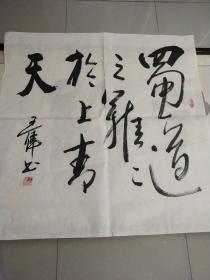 蜀道
之難〻
於上青
天